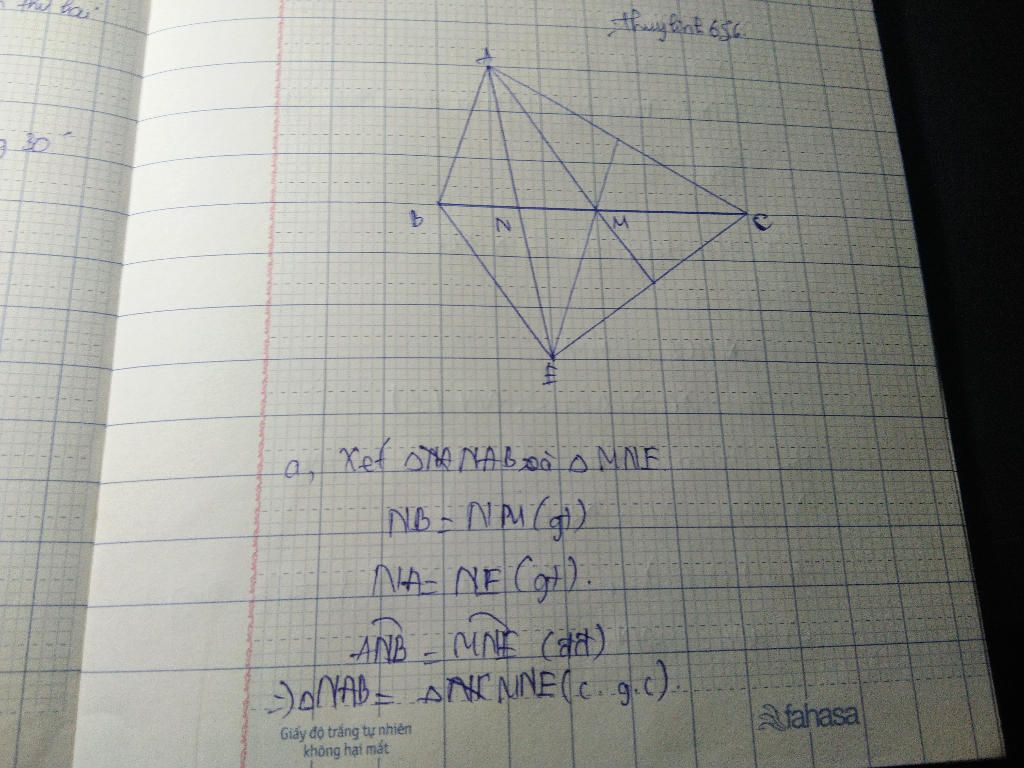 thuylinh656
g 30
A
B N M C
E
a, Xét △NAB và △MNE
NB = NM (gt)
NA = NE (gt).
ANB = MNE (đđ)
=> △NAB = △MNE (c.g.c).
Giấy độ trắng tự nhiên
không hại mắt
fahasa